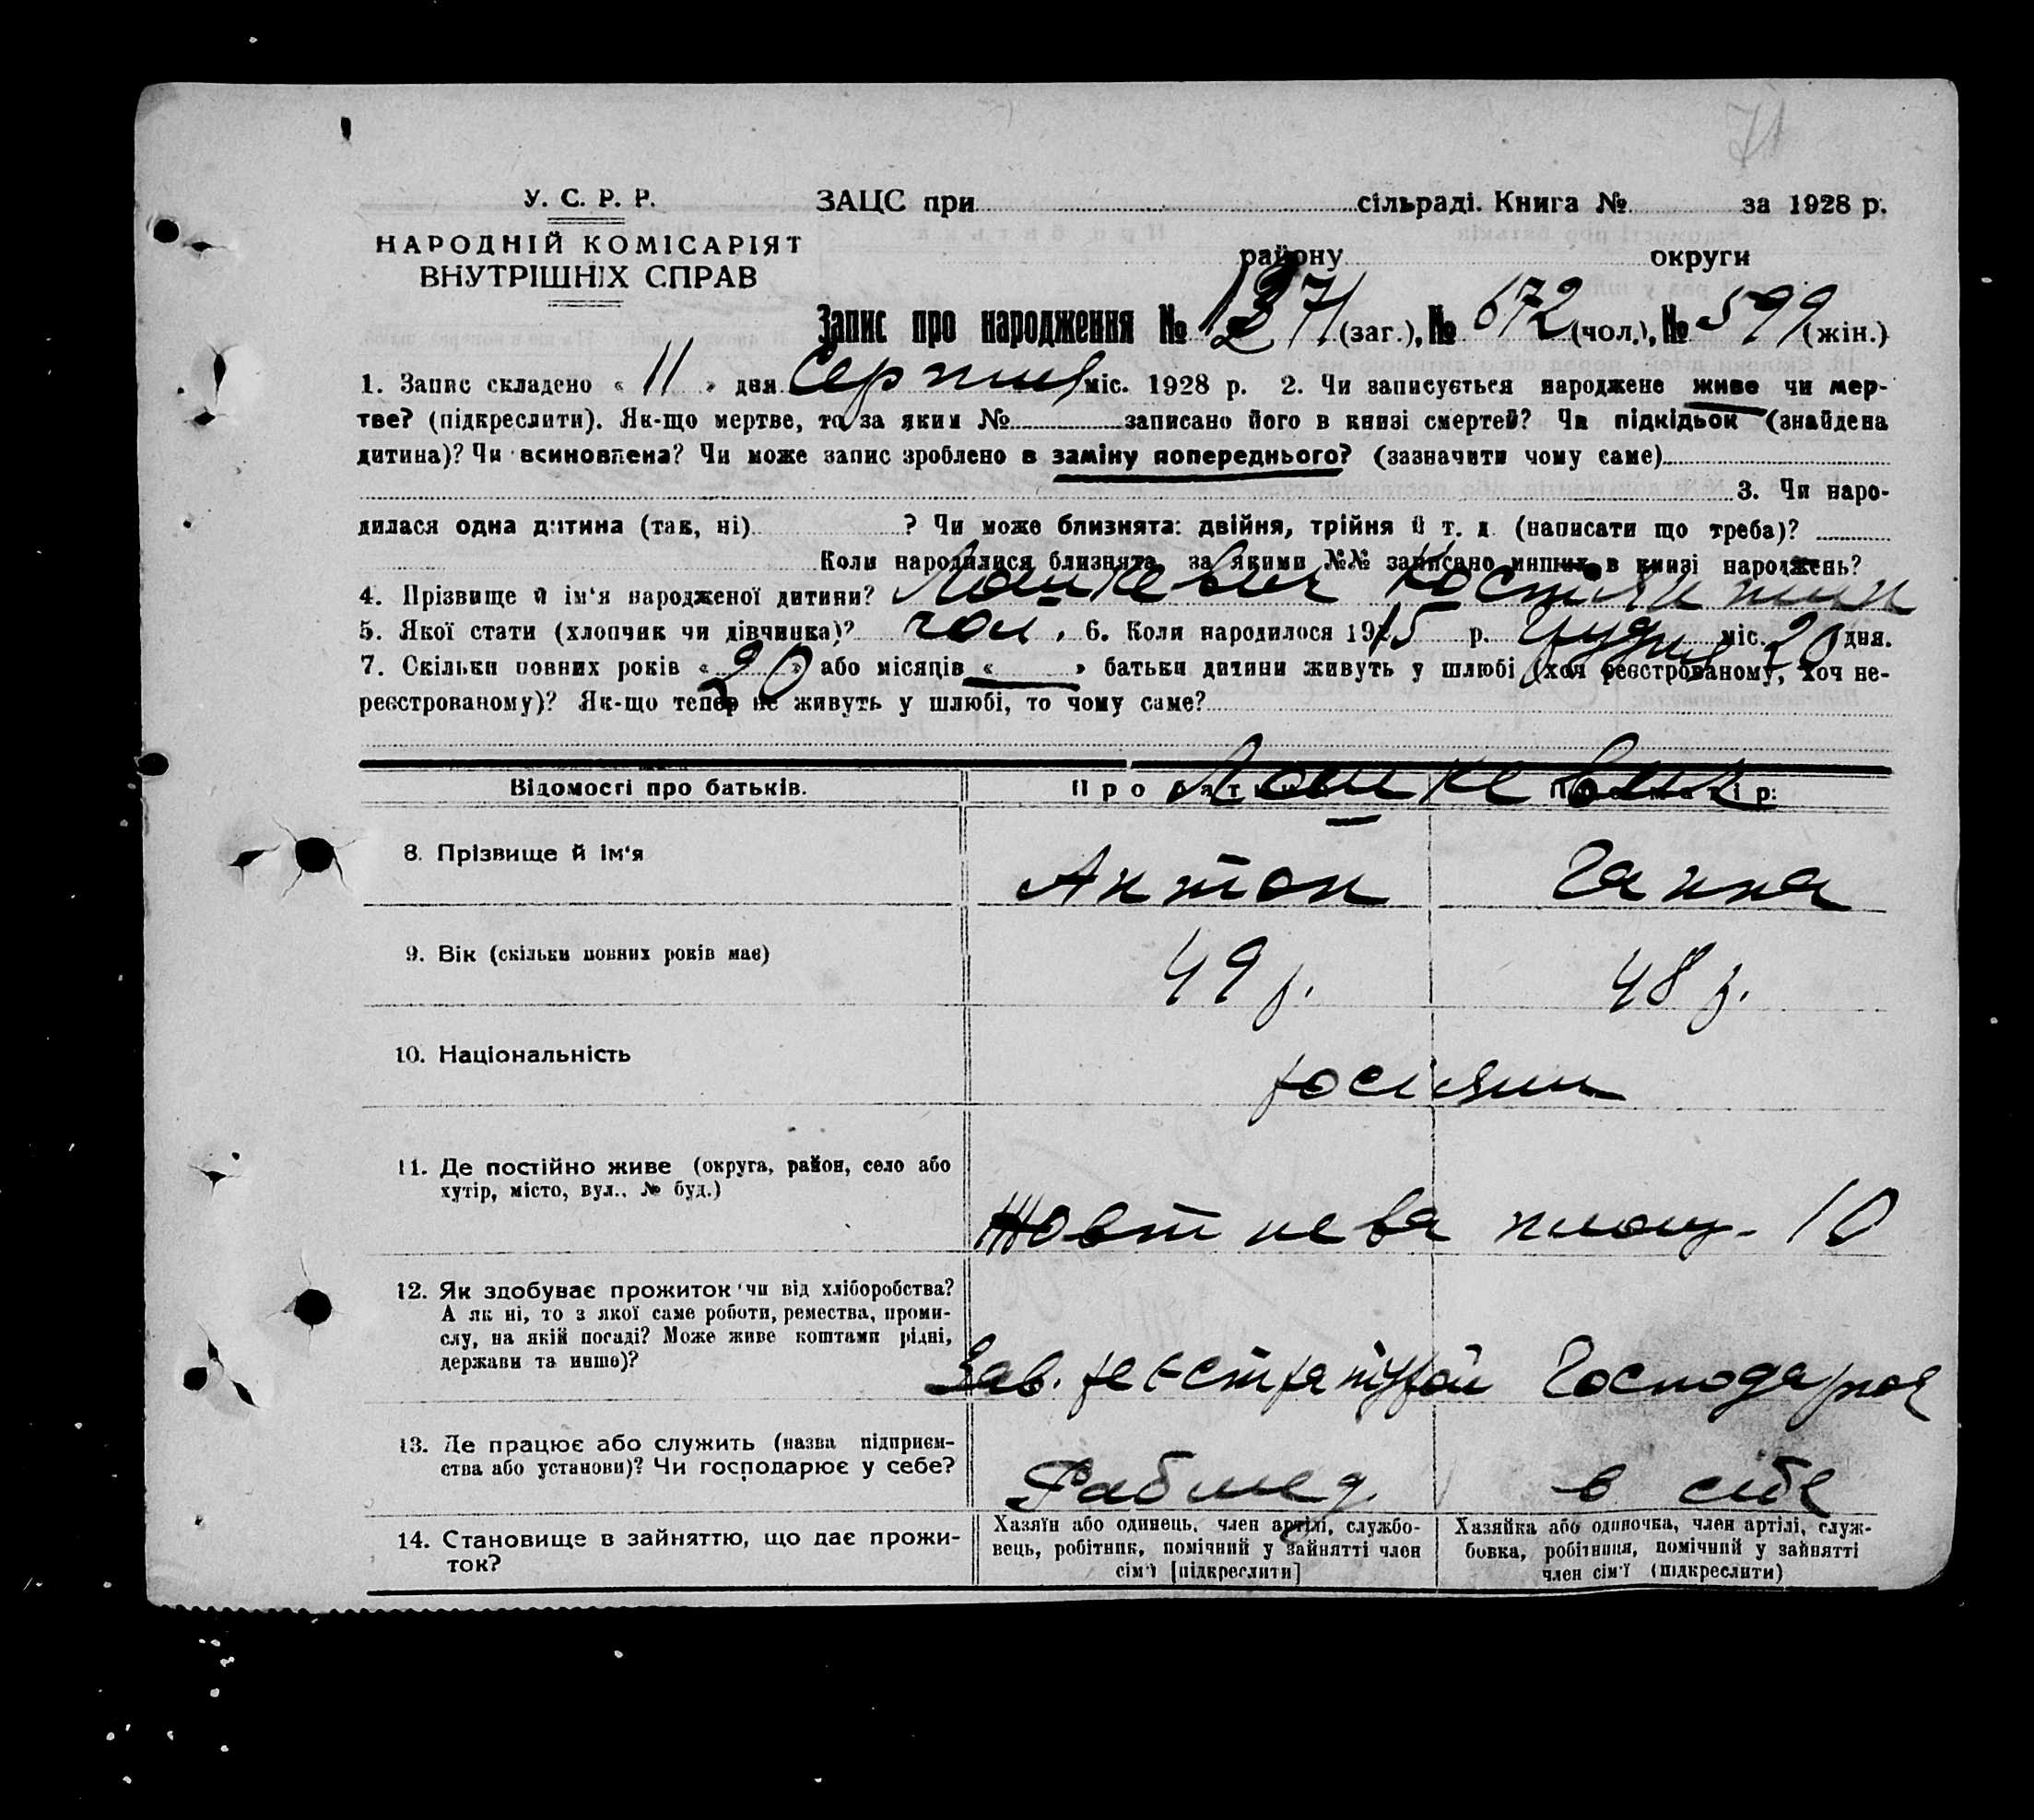 71
У. С. Р. Р.
НАРОДНІЙ КОМІСАРІЯТ
ВНУТРІШНІХ СПРАВ
ЗАЦС при сільраді. Книга № за 1928 р.
району округи
Запис про народження № 1271 (заг.), № 672 (чол.), № 599 (жін.)
1. Запис складено « 11 » дня Серпня міс. 1928 р. 2. Чи записується народжене живе чи мер-
тве? (підкреслити). Як-що мертве, то за яким № записано його в книзі смертей? Чи підкідьок (знайдена
дитина)? Чи всиновлена? Чи може запис зроблено в заміну попереднього? (зазначити чому саме)
3. Чи наро-
дилася одна дитина (так, ні) ? Чи може близнята: двійня, трійня й т. д. (написати що треба)?
Коли народилися близнята, за якими №№ записано инших в книзі народжень?
4. Прізвище й ім'я народженої дитини? Лошкевич Костянтин
5. Якої стати (хлопчик чи дівчинка)? чол. 6. Коли народилося 1915 р. Грудня міс. 20 дня.
7. Скільки повних років « 20 » або місяців « » батьки дитини живуть у шлюбі (хоч реєстрованому, хоч не-
реєстрованому)? Як-що тепер не живуть у шлюбі, то чому саме?
Відомості про батьків. Про батька: Про матір:
Лошкевич
8. Прізвище й ім'я Антон Ганна
9. Вік (скільки повних років має) 49 р. 48 р.
10. Національність росіяни
11. Де постійно живе (округа, район, село або
хутір, місто, вул., № буд.)
Жовтнева площ. 10
12. Як здобуває прожиток чи від хліборобства?
А як ні, то з якої саме роботи, ремества, проми-
слу, на якій посаді? Може живе коштами рідні,
держави та инше)?
Зав. реєстратурой Господарка
13. Де працює або служить (назва підприєм-
ства або установи)? Чи господарює у себе?
Рабмед в сібе
14. Становище в зайняттю, що дає прожи-
ток?
Хазяїн або одинець, член артілі, службо-
вець, робітник, помічний у зайнятті член
сім'ї [підкреслити]
Хазяйка або одиночка, член артілі, служ-
бовка, робітниця, помічний у зайнятті
член сім'ї (підкреслити)